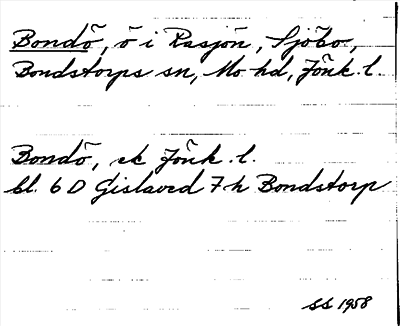 Bondö, ö i Rasjön, Sjöbo,
Bondstorps sn, Mo hd, Jönk. l.
Bondö, ek Jönk. l.
bl. 6 D Gislaved 7 h Bondstorp
SS 1958